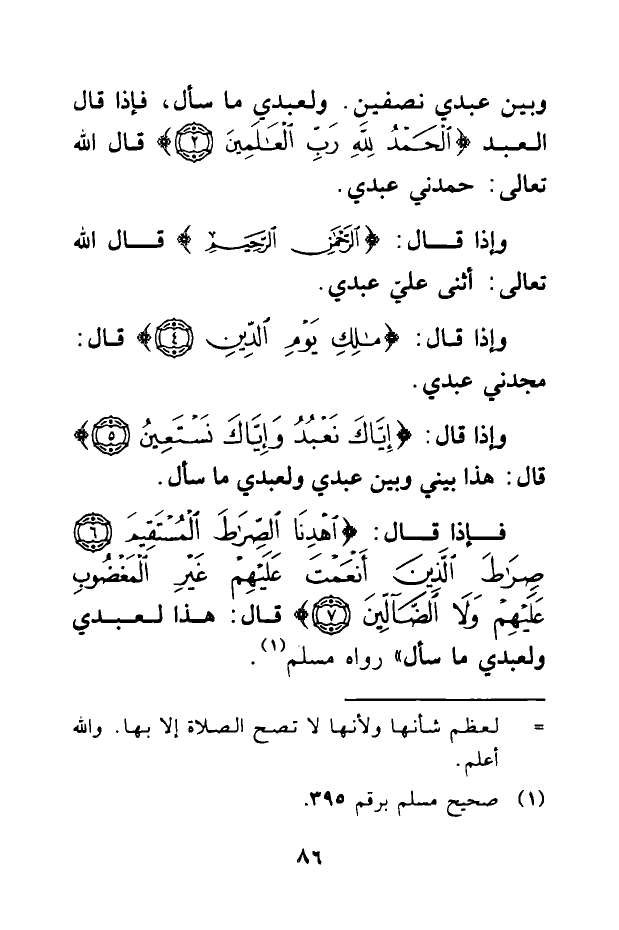 وبين عبدي نصفين. ولعبدي ما سأل، فإذا قال
العبد ﴿ٱلۡحَمۡدُ لِلَّهِ رَبِّ ٱلۡعَٰلَمِينَ ٢﴾ قال الله
تعالى: حمدني عبدي.
وإذا قال: ﴿ٱلرَّحۡمَٰنِ ٱلرَّحِيمِ﴾ قال الله
تعالى: أثنى عليّ عبدي.
وإذا قال: ﴿مَٰلِكِ يَوۡمِ ٱلدِّينِ ٤﴾ قال:
مجدني عبدي.
وإذا قال: ﴿إِيَّاكَ نَعۡبُدُ وَإِيَّاكَ نَسۡتَعِينُ ٥﴾
قال: هذا بيني وبين عبدي ولعبدي ما سأل.
فإذا قال: ﴿ٱهۡدِنَا ٱلصِّرَٰطَ ٱلۡمُسۡتَقِيمَ ٦
صِرَٰطَ ٱلَّذِينَ أَنۡعَمۡتَ عَلَيۡهِمۡ غَيۡرِ ٱلۡمَغۡضُوبِ
عَلَيۡهِمۡ وَلَا ٱلضَّآلِّينَ ٧﴾ قال: هذا لعبدي
ولعبدي ما سأل» رواه مسلم(١).
= لعظم شأنها ولأنها لا تصح الصلاة إلا بها. والله
أعلم.
(١) صحيح مسلم برقم ٣٩٥.
٨٦